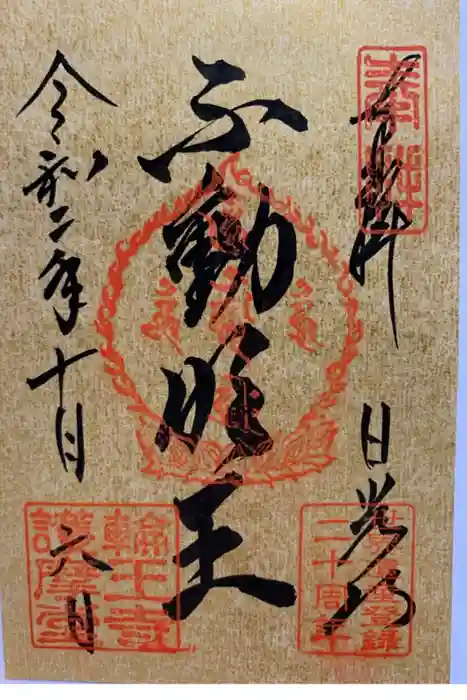 奉拝　日光山
不動明王
令和二年十月二八日
世界遺産登録
二十周年
輪王寺
護摩堂